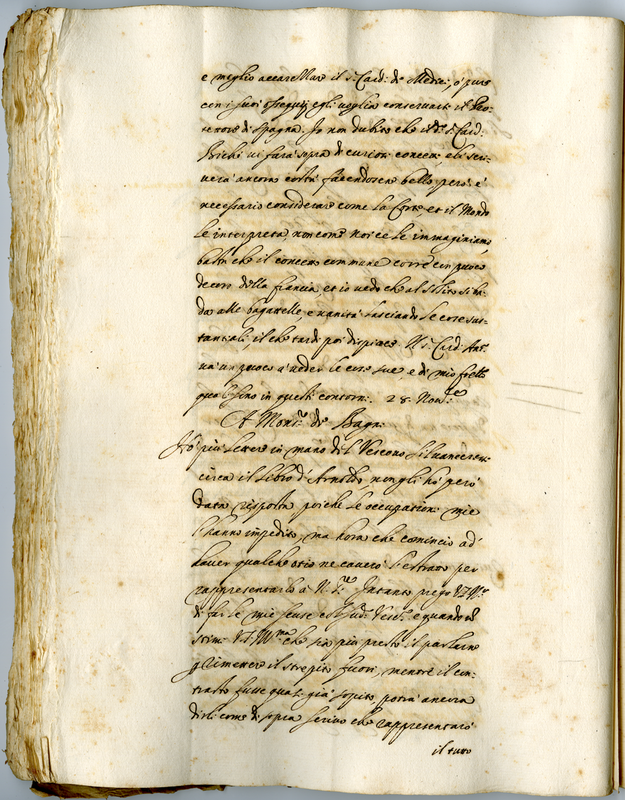 e meglio accarezzare il s.r Card: de Medici, ò pure
con i suoi ossequij egli voglia conservarsi il
di Spagna. Io non dubito che il d.o s.r Card:
Bichi vi farà sopra di curiosi concetti, e li scri-
verà ancora costì facendosene bello però è
necessario considerare come la Corte et il Mondo
le interpreta, non come noi ce le immaginiamo,
basta che il concetto commune corre con puoco
decoro della francia, et io vedo che al solito si ba-
da alle bagattelle, e vanità lasciando le cose sus-
tantiali, il che tardi poi dispiace. Il s.r Card: Ant.o
và un puoco à veder le cose sue, e di mio frello
qua sino in questi contorni. 28. Nov.re
A Mons.r di Bagni
Hò più lettere in mano del Vescovo
circa il libro d'Arnoldo, non gli hò però
data risposta poiche le occupationi mie
l'hanno impedito, ma hora che comincio ad'
haver qualche otio ne caverò l'estratto per
rappresentarlo à N. S.re Intanto prego V.S. Ill.ma
di far le mie scuse col sud.o Vesc.o e quando
stimi V.S. Ill.ma che sia più presto il parlarne
p rimettere il strepito fuori, mentre il con-
trasto fusse quasi già sopito, potrà ancora
dirli come di sopra scrivo che rappresentarò
il tutto